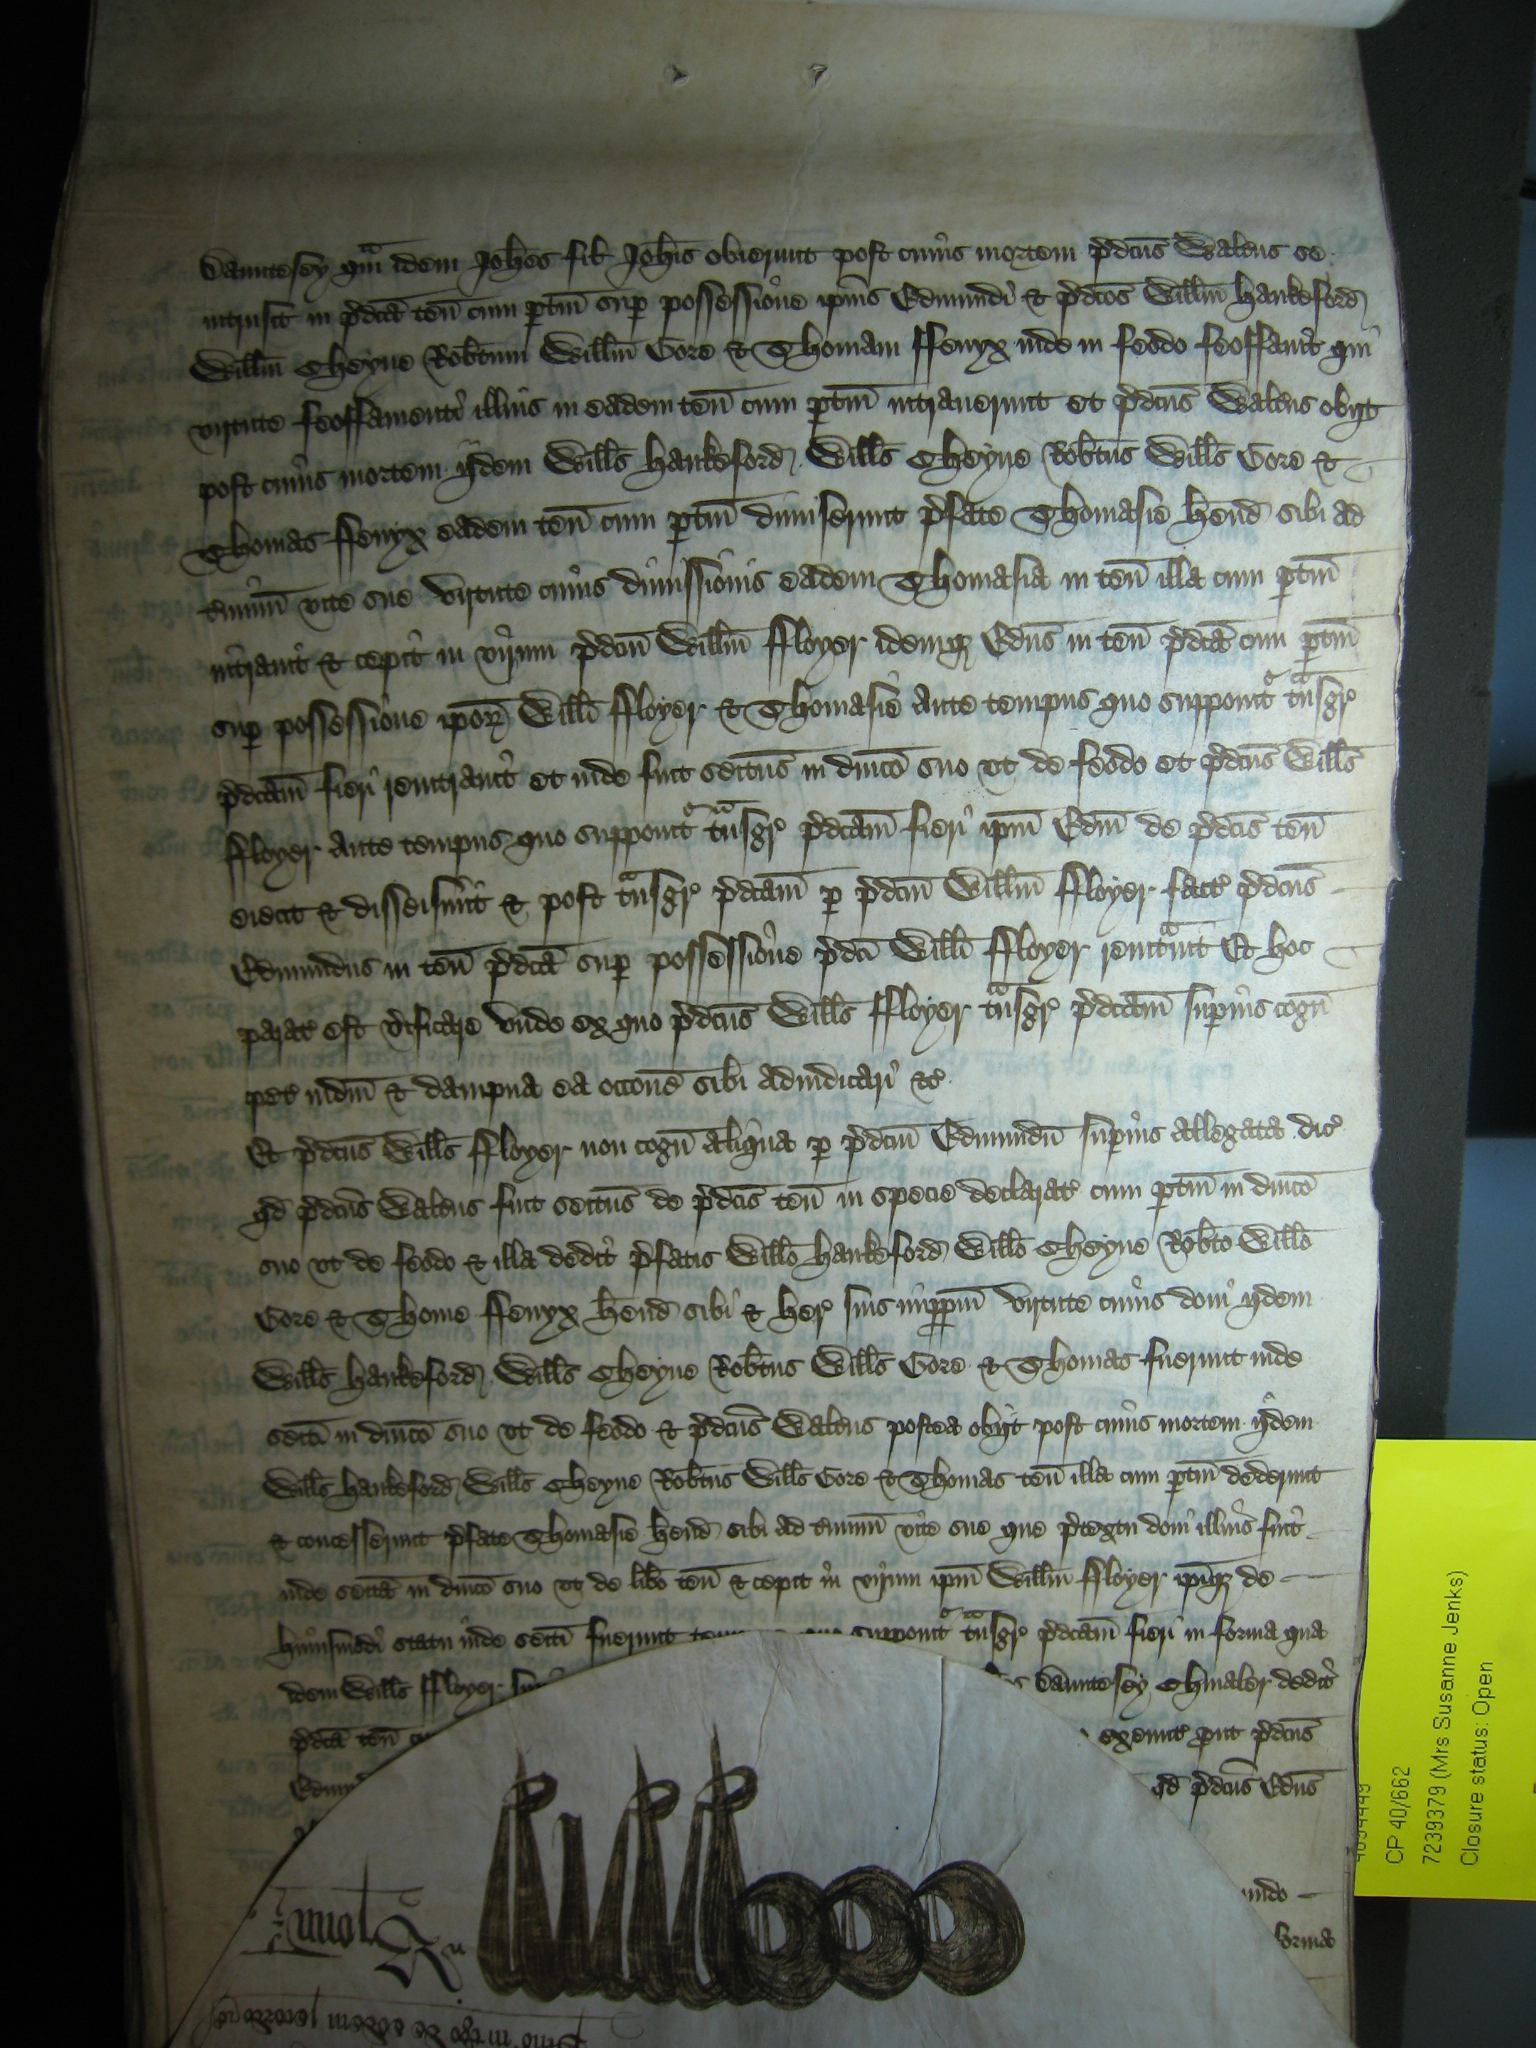 Dauntesey q̄m idem Joħes fil Joħis obierunt post cuius mortem p̄dc̄us Walt̄us se
intrusit in p̄dc̄a ten̄ cum ptin̄ sup possessione ip̄ius Edmundi & p̄dc̄os Will̄m Hankeford
Will̄m Cheyne Rob̄tum Will̄m Gore & Thomam ffenyx inde in feodo feoffavit qui
virtute feoffamenti illius in eadem ten̄ cum ptin̄ intraverunt et p̄dc̄us Walt̄us obijt
post cuius mortem ijdem Will̄s Hankeford Will̄s Cheyne Rob̄tus Will̄s Gore &
Thomas ffenyx eadem ten̄ cum ptin̄ dimiserunt p̄fate Thomasie hend̄ sibi ad
t̄minū vite sue virtute cuius dimissionis eadem Thomasia in ten̄ illa cum ptin̄
intravit & cepit in virum p̄dc̄m Will̄m ffloyer idemq Edūs in ten̄ p̄dc̄a cum ptin̄
sup possessione ip̄or Will̄i ffloyer & Thomasie ante tempus quo supponit tn̄sgr
p̄dc̄am fieri reintravit et inde fuit seitus in dn̄ico suo ut de feodo et p̄dc̄us Will̄s
ffloyer ante tempus quo supponit tn̄sgr p̄dc̄am fieri ip̄m Edm̄ de p̄dc̄is ten̄
eiecit & disseisivit & post tn̄sgr p̄dc̄am p p̄dc̄m Will̄m ffloyer fact p̄dc̄us
Edmundus in ten̄ p̄dc̄a sup possessione p̄dc̄i Will̄i ffloyer reintravit Et hoc
parat est v̄ificare unde ex quo p̄dc̄us Will̄s ffloyer tn̄sgr p̄dc̄am sup̄ius cogn̄
pet iudm̄ & dampna ea occōne sibi adiudicari &c
Et p̄dc̄us Will̄s ffloyer non cogn̄ aliqua p p̄dc̄m Edmundū sup̄ius allegata dic
qd p̄dc̄us Walt̄us fuit seitus de p̄dc̄is ten̄ in specie declarat cum ptin̄ in dn̄ico
suo ut de feodo & illa dedit p̄fatis Will̄o Hankeford Will̄o Cheyne Rob̄to Will̄o
Gore & Thome ffenyx hend̄ sibi & her suis imppm̄ virtute cuius doni ijdem
Will̄s Hankeford Will̄s Cheyne Rob̄tus Will̄s Gore & Thomas fuerunt inde
seiti in dn̄ico suo ut de feodo & p̄dc̄us Walt̄us postea obijt post cuius mortem ijdem
Will̄s Hankeford Will̄s Cheyne Rob̄tus Will̄s Gore & Thomas ten̄ illa cum ptin̄ dederunt
& concesserunt p̄fate Thomasie hend̄ sibi ad t̄minū vite sue que p̄textu doni illius fuit
inde seita in dn̄ico suo ut de lib̄o ten̄ & cepit in virum ip̄m Will̄m ffloyer ip̄iq de
huiusmodi statu inde seiti fuerunt supponit tn̄sgr p̄dc̄am fieri in forma qua
idem Will̄s ffloyer Dauntesey Chivaler dedit
p̄dc̄a ten̄ exeunt put p̄dc̄us
qd p̄dc̄us Edūs
forma
CP 40/662
7239379 (Mrs Susanne Jenks)
Closure status: Open